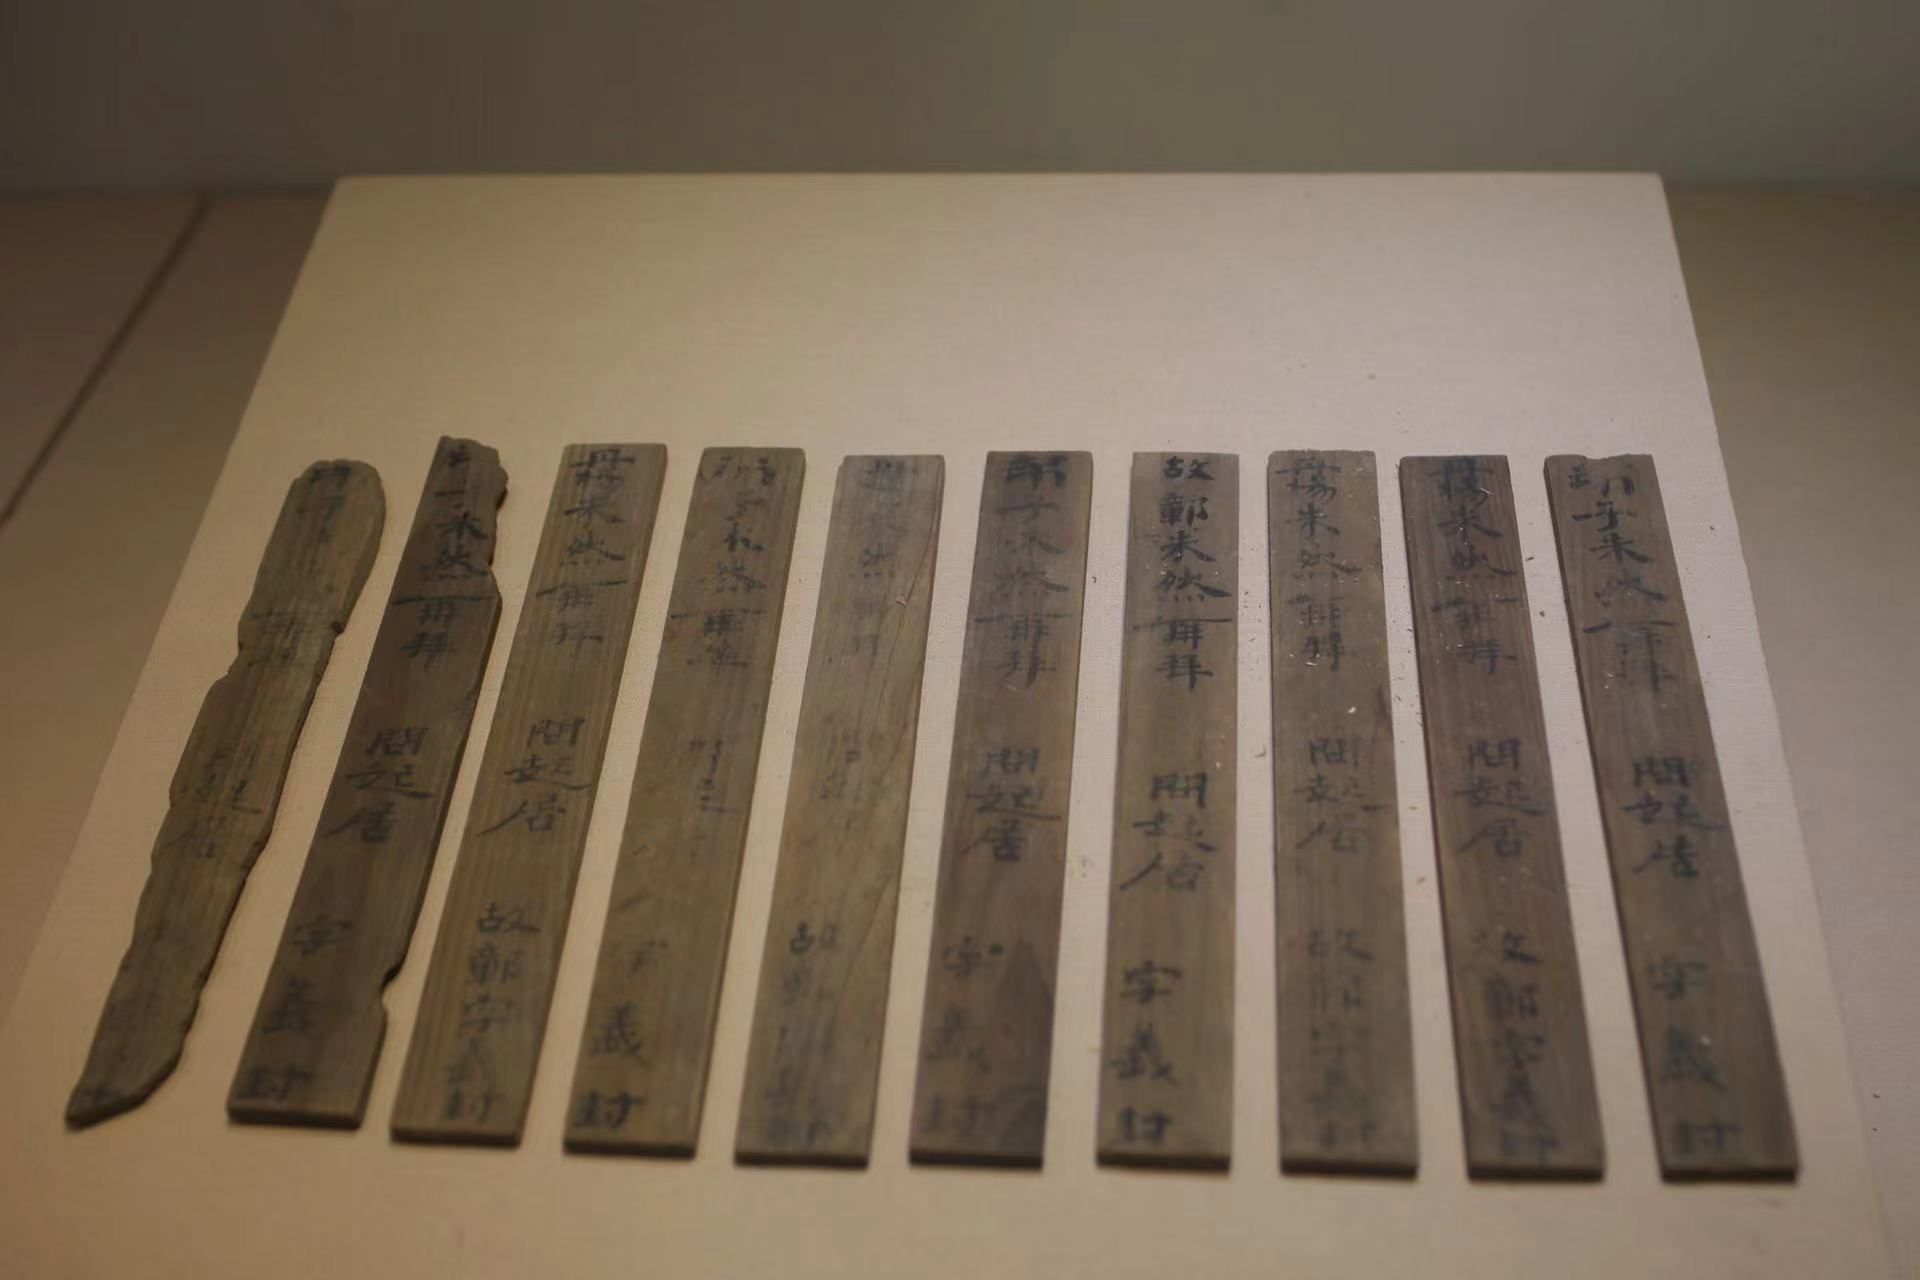 弟子朱然再拜 問起居 字義封
丹楊朱然再拜 問起居 故鄣字義封
丹楊朱然再拜 問起居 故鄣字義封
故鄣朱然再拜 問起居 字義封
弟子朱然再拜 問起居 字義封
朱然再拜 故
弟子朱然再拜 字義封
丹楊朱然再拜 問起居 故鄣字義封
朱然再拜 問起居 字義封
弟子 再拜 起居